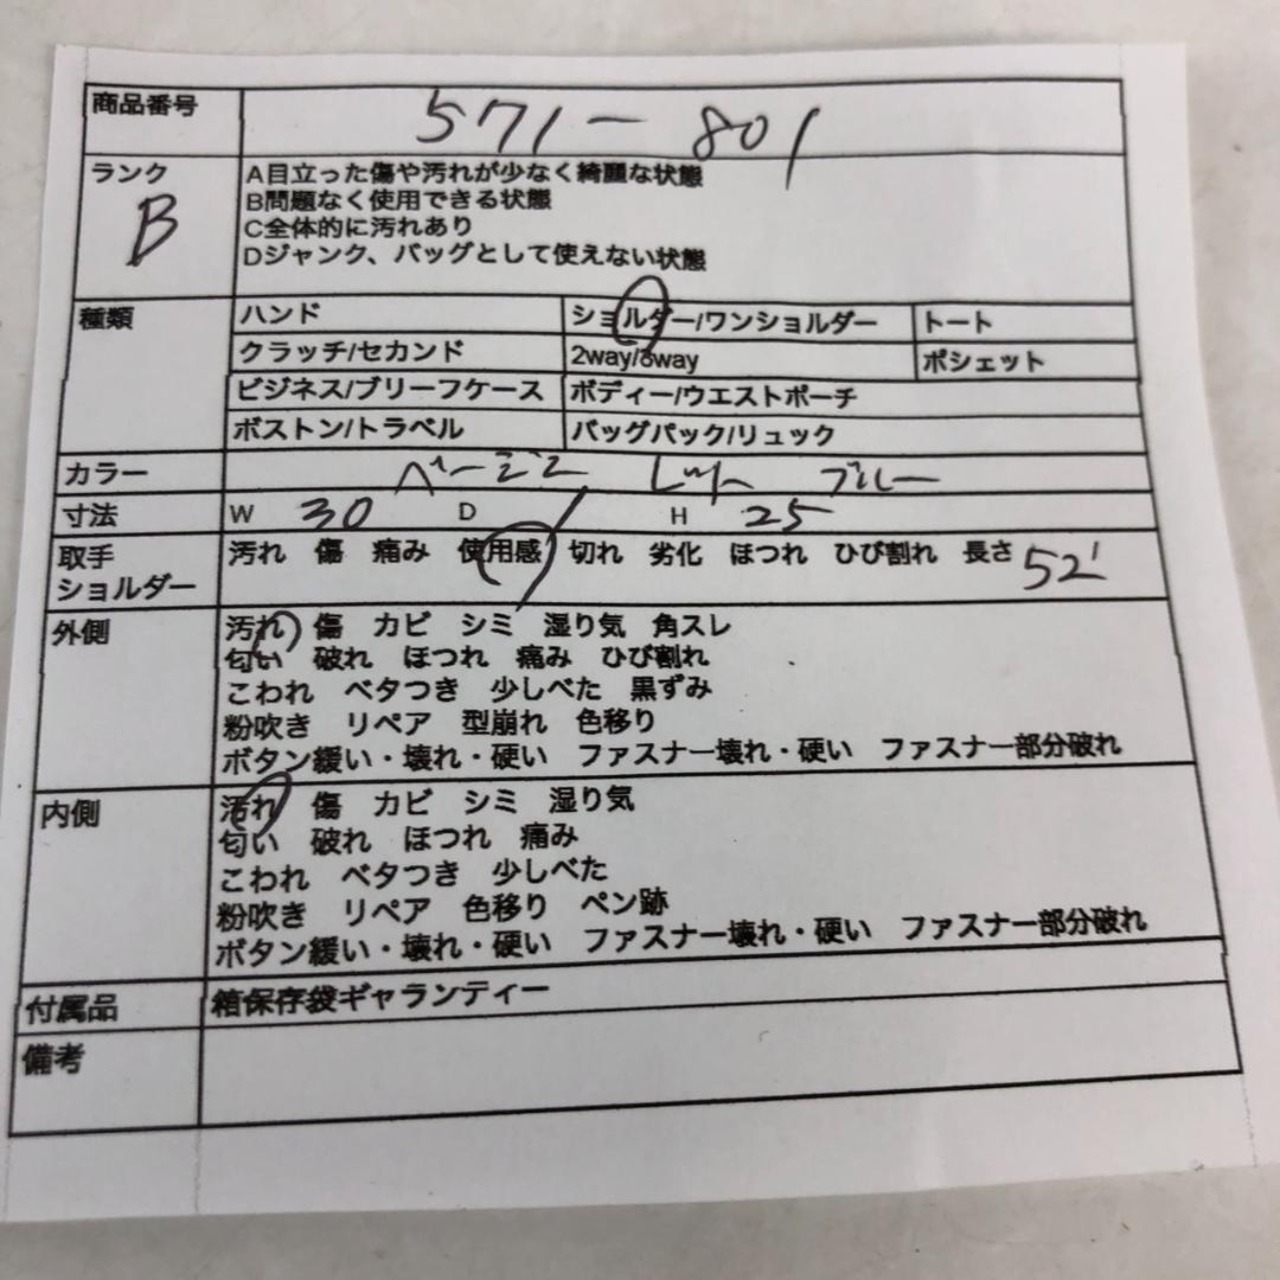 商品番号 571-801
ランク B
A目立った傷や汚れが少なく綺麗な状態
B問題なく使用できる状態
C全体的に汚れあり
Dジャンク、バッグとして使えない状態
種類 ハンド ショルダー/ワンショルダー トート
クラッチ/セカンド 2way/3way ポシェット
ビジネス/ブリーフケース ボディー/ウエストポーチ
ボストン/トラベル バッグパック/リュック
カラー ベージュ レッド ブルー
寸法 W 30 D / H 25
取手 汚れ 傷 痛み 使用感 切れ 劣化 ほつれ ひび割れ 長さ 52
ショルダー
外側 汚れ 傷 カビ シミ 湿り気 角スレ
匂い 破れ ほつれ 痛み ひび割れ
こわれ ベタつき 少しべた 黒ずみ
粉吹き リペア 型崩れ 色移り
ボタン緩い・壊れ・硬い ファスナー壊れ・硬い ファスナー部分破れ
内側 汚れ 傷 カビ シミ 湿り気
匂い 破れ ほつれ 痛み
こわれ ベタつき 少しべた
粉吹き リペア 色移り ペン跡
ボタン緩い・壊れ・硬い ファスナー壊れ・硬い ファスナー部分破れ
付属品 箱保存袋ギャランティー
備考